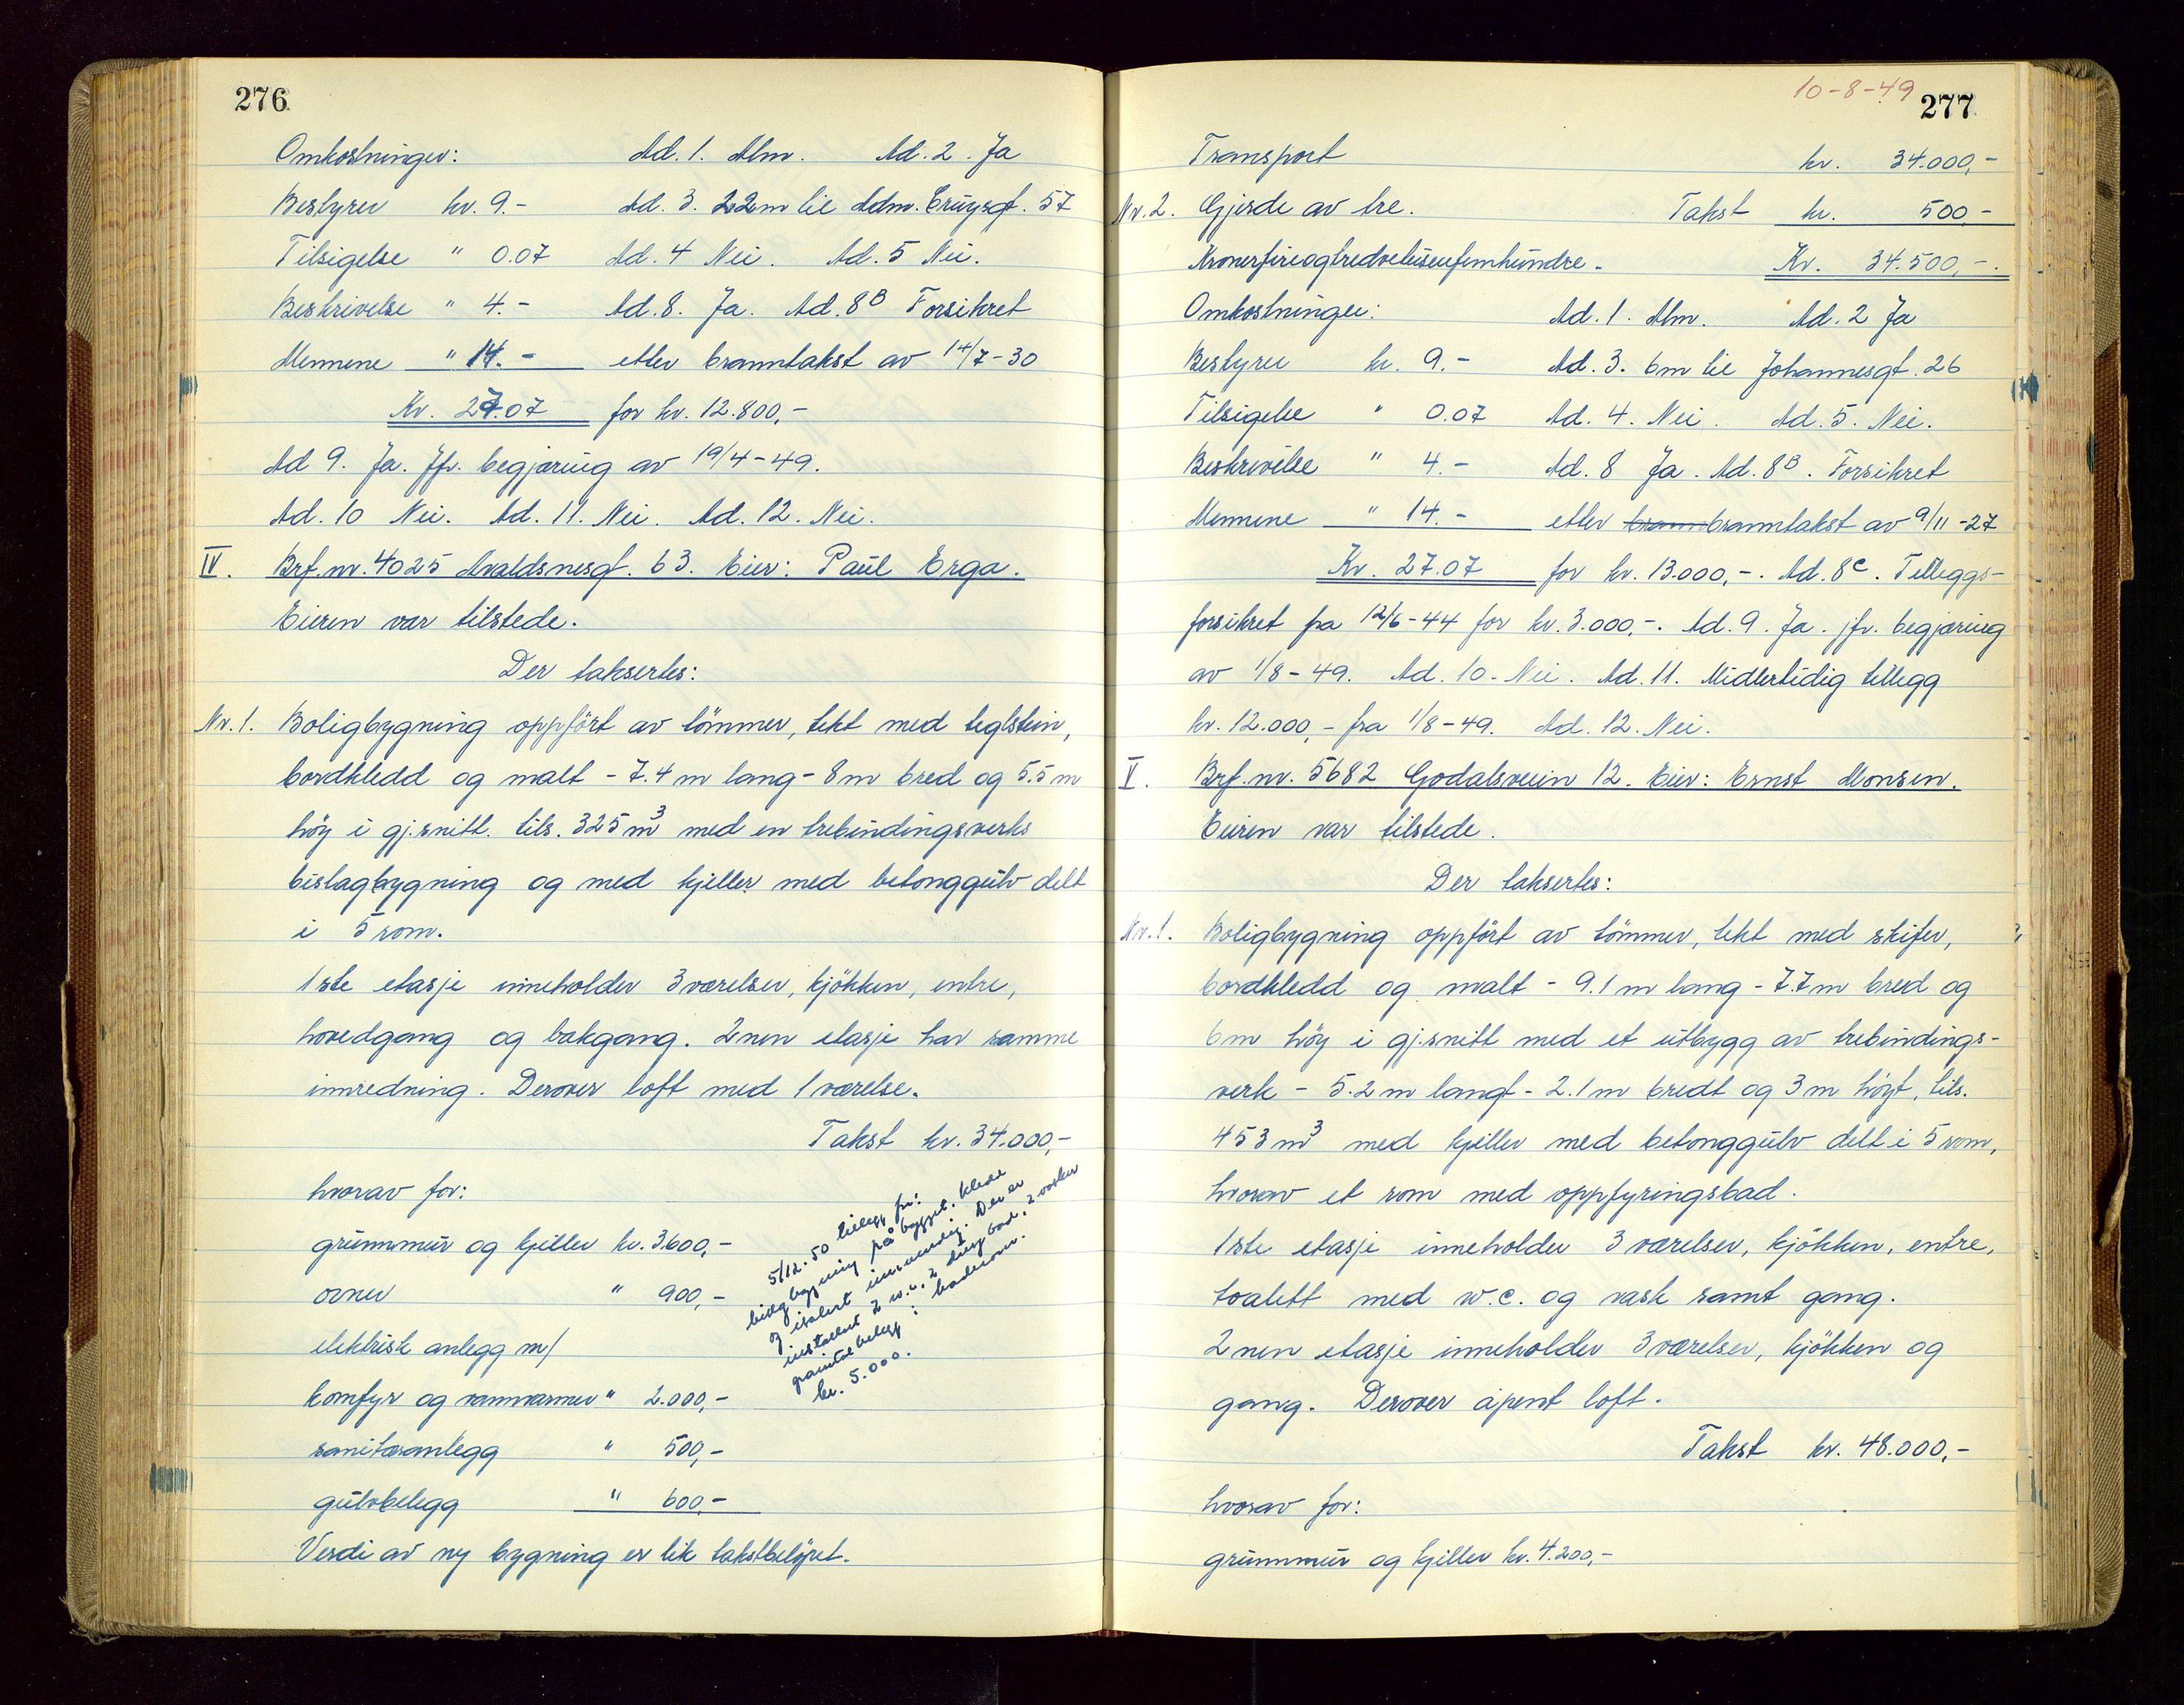 276
Omkostninger: Ad. 1. Alm. Ad. 2. Ja
Bestyrer kr. 9.- Ad. 3. 22m til Adm. Cruysgt. 57
Tilsigelse " 0.07 Ad. 4 Nei. Ad. 5 Nei.
Beskrivelse " 4.- Ad. 8. Ja. Ad. 8B Forsikret
Mennene " 14.- etter branntakst av 14/7-30
Kr. 27.07 for kr. 12.800,-
Ad 9. Ja. Jfr. begjæring av 19/4-49.
Ad. 10 Nei. Ad. 11. Nei. Ad. 12. Nei.
IV. Brf. nr. 4025 Avaldsnesgt. 63. Eier: Paul Erga.
Eieren var tilstede.
Der taksertes:
Nr. 1. Boligbygning oppfört av tömmer, tekt med teglstein,
bordkledd og malt - 7.4 m lang - 8 m bred og 5.5 m
höy i gj.snitt. tils. 325 m3 med en trebindingsverks
bislagbygning og med kjeller med betonggulv delt
i 5 rom.
1ste etasje inneholder 3 værelser, kjökken, entre,
hovedgang og bakgang. 2nen etasje har samme
innredning. Derover loft med 1 værelse.
Takst kr. 34.000,-
hvorav for:
grunnmur og kjeller kr. 3.600,-
ovner " 900,-
elektrisk anlegg m/
komfyr og vannvarmer " 2.000,-
sanitæranlegg " 500,-
gulvbelegg " 600,-
Verdi av ny bygning er lik takstbelöpet.
5/12.50 tillegg for:
bislagbygning påbygget, kledd
og isolert innvendig. Der er
installert 2 w.c., 2 dusjbad, 2 vasker
granitolbelegg i baderom.
kr. 5.000.
10-8-49
277
Transport kr. 34.000,-
Nr. 2. Gjerde av tre. Takst kr. 500,-
Kronerfireogtredvetusenfemhundre. Kr. 34.500,-.
Omkostninger: Ad. 1. Alm. Ad. 2 Ja
Bestyrer kr. 9.- Ad. 3. 6m til Johannesgt. 26
Tilsigelse " 0.07 Ad. 4. Nei. Ad. 5. Nei.
Beskrivelse " 4.- Ad. 8 Ja. Ad. 8B. Forsikret
Mennene " 14.- etter brann branntakst av 9/11-27
Kr. 27.07 for kr. 13.000,-. Ad. 8C. Tilleggs-
forsikret fra 12/6-44 for kr. 3.000,-. Ad. 9. Ja. jfr. begjæring
av 1/8-49. Ad. 10. Nei. Ad. 11. Midlertidig tillegg
kr. 12.000,- fra 1/8-49. Ad. 12. Nei.
V. Brf. nr. 5682 Godalsveien 12. Eier: Ernst Monsen.
Eieren var tilstede.
Der taksertes:
Nr. 1. Boligbygning oppfört av tömmer, tekt med skifer,
bordkledd og malt - 9.1 m lang - 7.7 m bred og
6 m höy i gj.snitt med et utbygg av trebindings-
verk - 5.2 m langt - 2.1 m bredt og 3 m höyt, tils.
453 m3 med kjeller med betonggulv delt i 5 rom,
hvorav et rom med oppfyringsbad.
1ste etasje inneholder 3 værelser, kjökken, entre,
toalett med w.c. og vask samt gang.
2nen etasje inneholder 3 værelser, kjökken og
gang. Derover åpent loft.
Takst kr. 48.000,-
hvorav for:
grunnmur og kjeller kr. 4.200,-